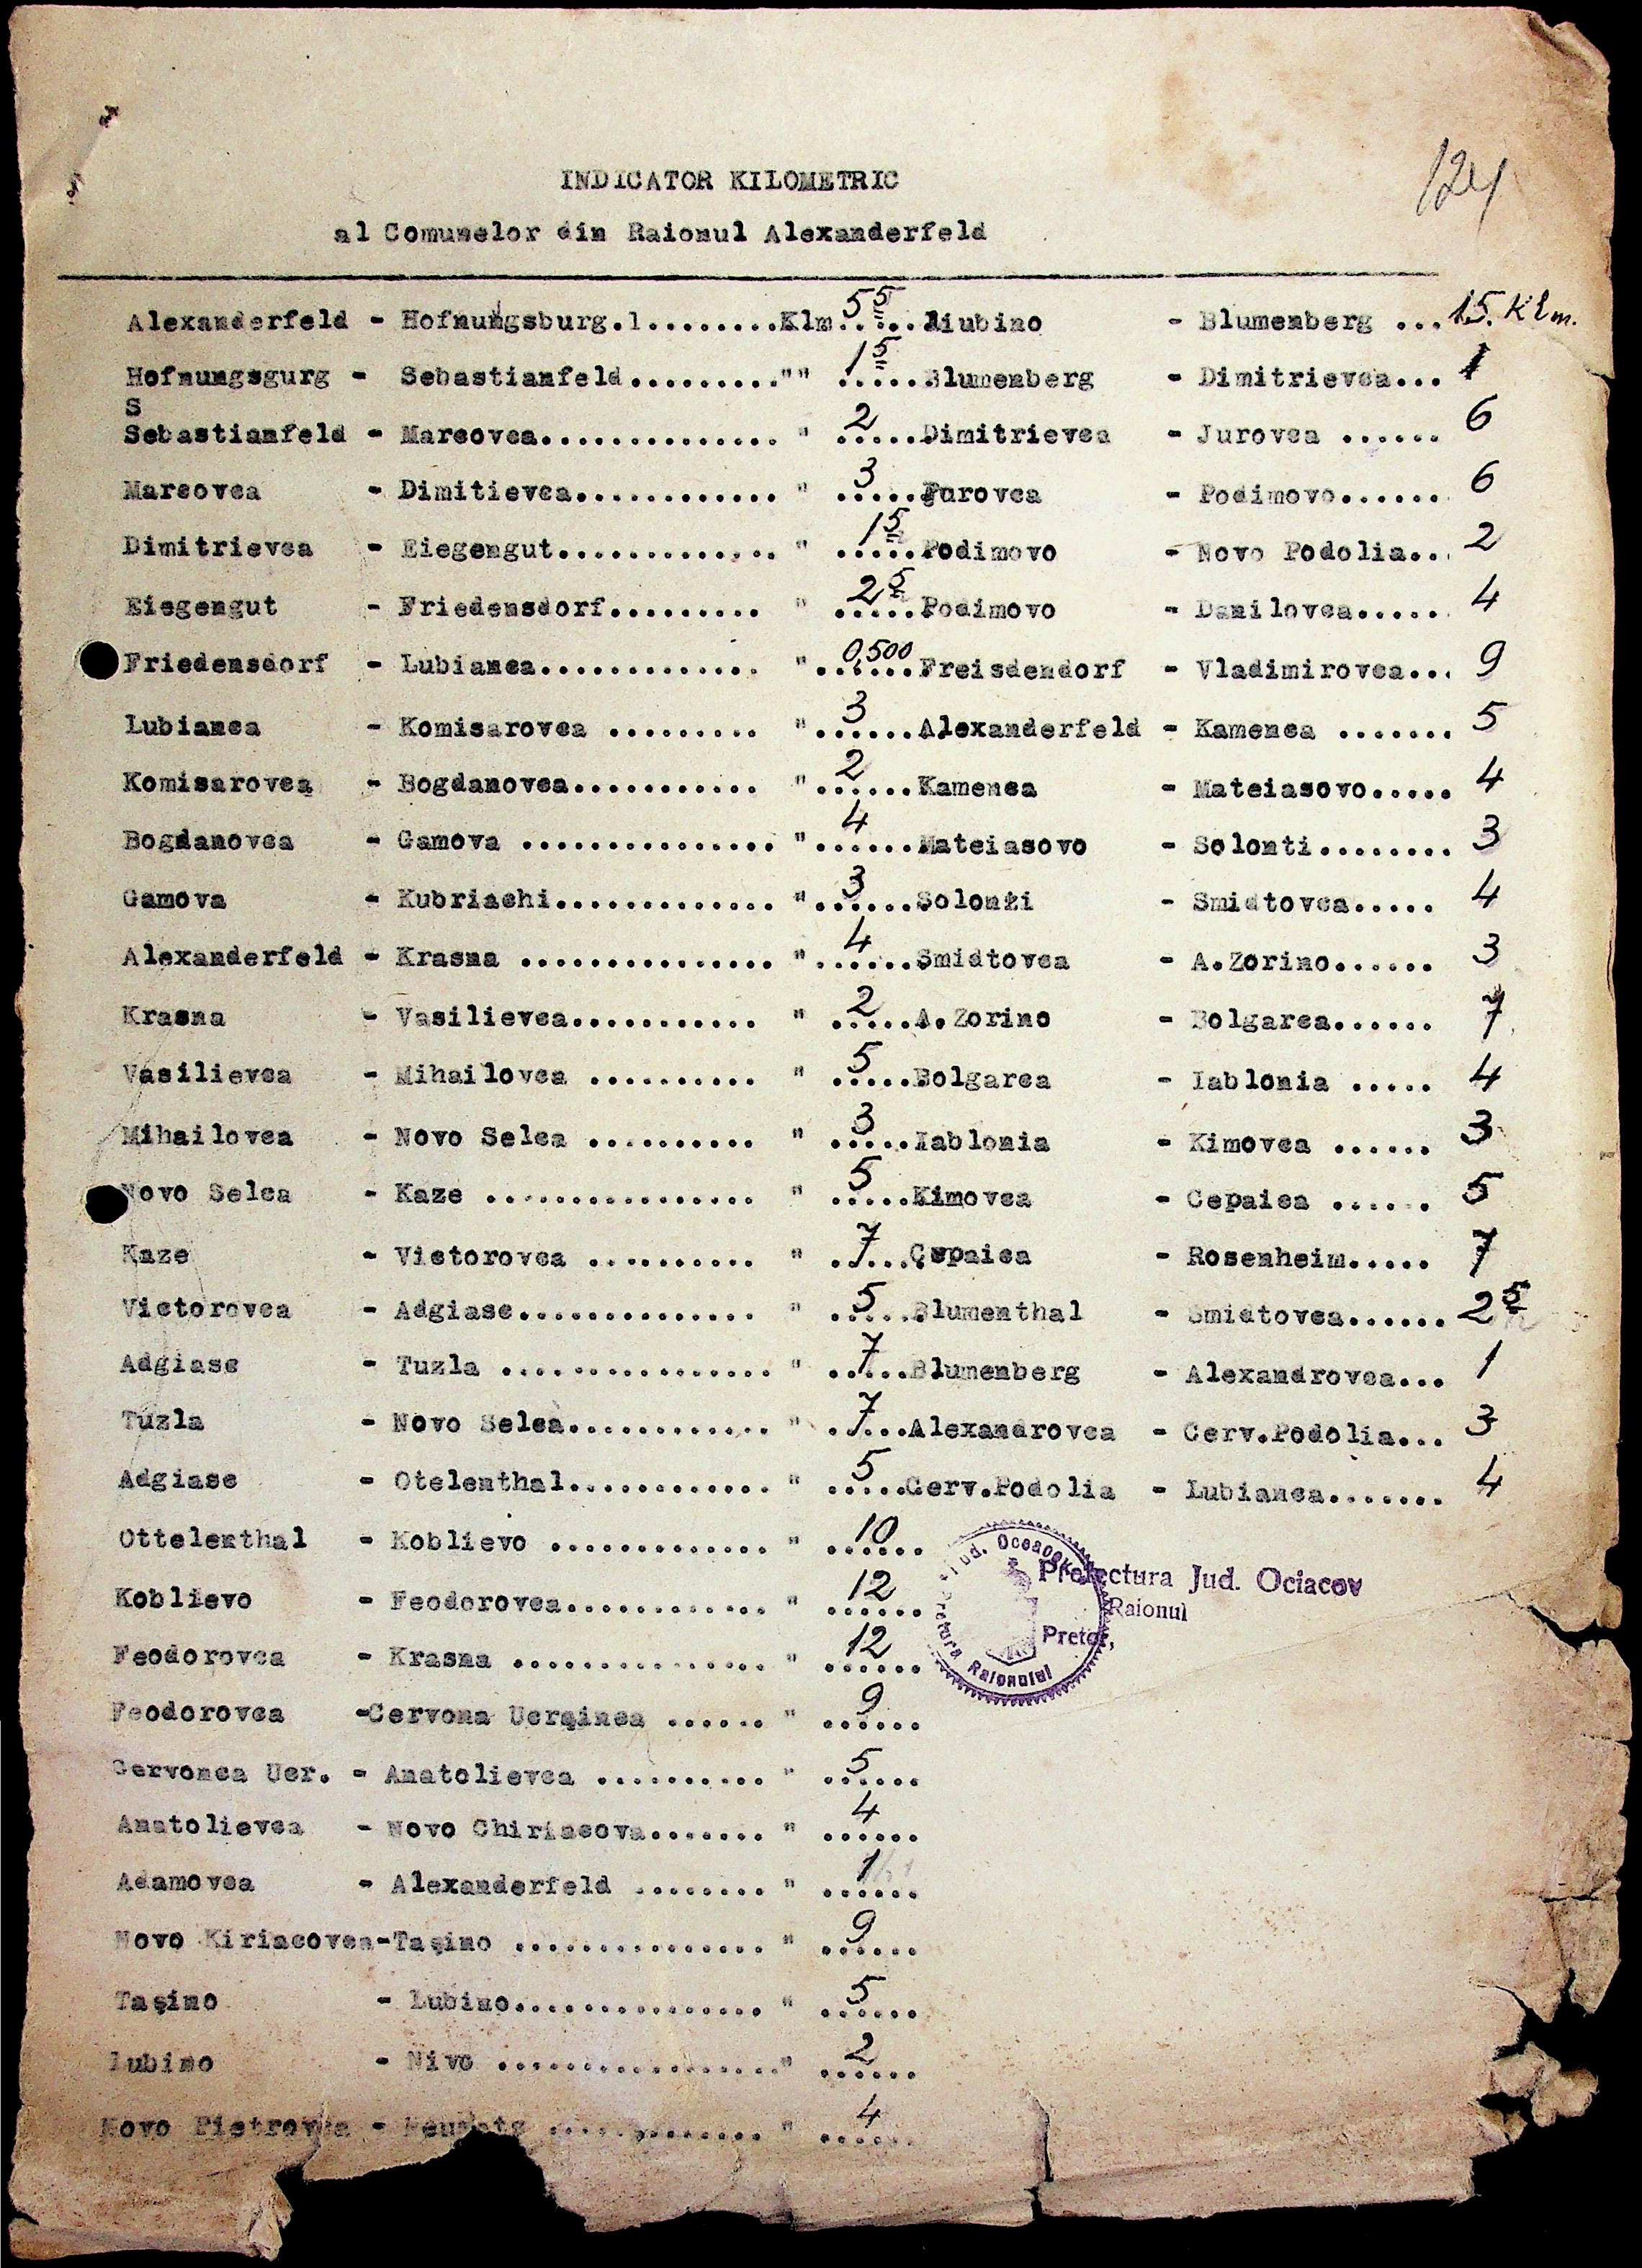 124
INDICATOR KILOMETRIC
al Comunelor din Raionul Alexanderfeld
Alexanderfeld - Hofnungsburg.l........Klm 5 5 ..... Liubino - Blumenberg ... 15. Klm.
Hofnungsgurg - Sebastianfeld........."" 1 5 ..... Blumenberg - Dimitrievca... 1
S
Sebastianfeld - Marcovca.............. " 2 ..... Dimitrievca - Jurovca ...... 6
Marcovca - Dimitievca............ " 3 ..... Jurovca - Podimovo...... 6
Dimitrievca - Eiegengut............. " 1 5 ..... Podimovo - Novo Podolia... 2
Eiegengut - Friedensdorf......... " 2 5 ..... Podimovo - Danilovca...... 4
Friedensdorf - Lubianca............. " 0,500 ...... Freisdendorf - Vladimirovca... 9
Lubianca - Komisarovca ......... " 3 ...... Alexanderfeld - Kamenca ....... 5
Komisarovca - Bogdanovca........... " 2 ...... Kamenca - Mateiasovo..... 4
Bogdanovca - Gamova ............... " 4 ...... Mateiasovo - Solonti........ 3
Gamova - Kubriachi............. " 3 ...... Solonti - Smidtovca..... 4
Alexanderfeld - Krasna ............... " 4 ...... Smidtovca - A.Zorino....... 3
Krasna - Vasilievca........... " 2 ..... A.Zorino - Bolgarca...... 7
Vasilievca - Mihailovca .......... " 5 ..... Bolgarca - Iablonia ..... 4
Mihailovca - Novo Selca .......... " 3 ..... Iablonia - Kimovca ...... 3
Novo Selca - Kaze ................ " 5 ..... Kimovca - Cepaica ...... 5
Kaze - Victorovca .......... " 7 ..... Cepaica - Rosenheim..... 7
Victorovca - Adgiasc.............. " 5 ..... Blumenthal - Smidtovca...... 2 5
Adgiasc - Tuzla ................ " 7 ..... Blumenberg - Alexandrovca... 1
Tuzla - Novo Selca............ " 7 ..... Alexandrovca - Cerv.Podolia... 3
Adgiasc - Otelenthal............ " 5 ..... Cerv.Podolia - Lubianca....... 4
Ottelenthal - Koblievo ............. " 10 ......
Koblievo - Feodorovca............ " 12 ......
Feodorovca - Krasna ............... " 12 ......
Feodorovca -Cervona Ucrainca ...... " 9 ......
Cervonca Ucr. - Anatolievca .......... " 5 ......
Anatolievca - Novo Chiriacova....... " 4 ......
Adamovca - Alexanderfeld ........ " 1 ......
Novo Kiriacovca-Taşino ............... " 9 ......
Taşino - Lubino............... " 5 ......
Lubino - Nivo ................." 2 ......
Novo Pietrovca - ............. " 4 ......
Jud. Oceacov
Pretura Raionului
Prefectura Jud. Ociacov
Raionul
Pretor,